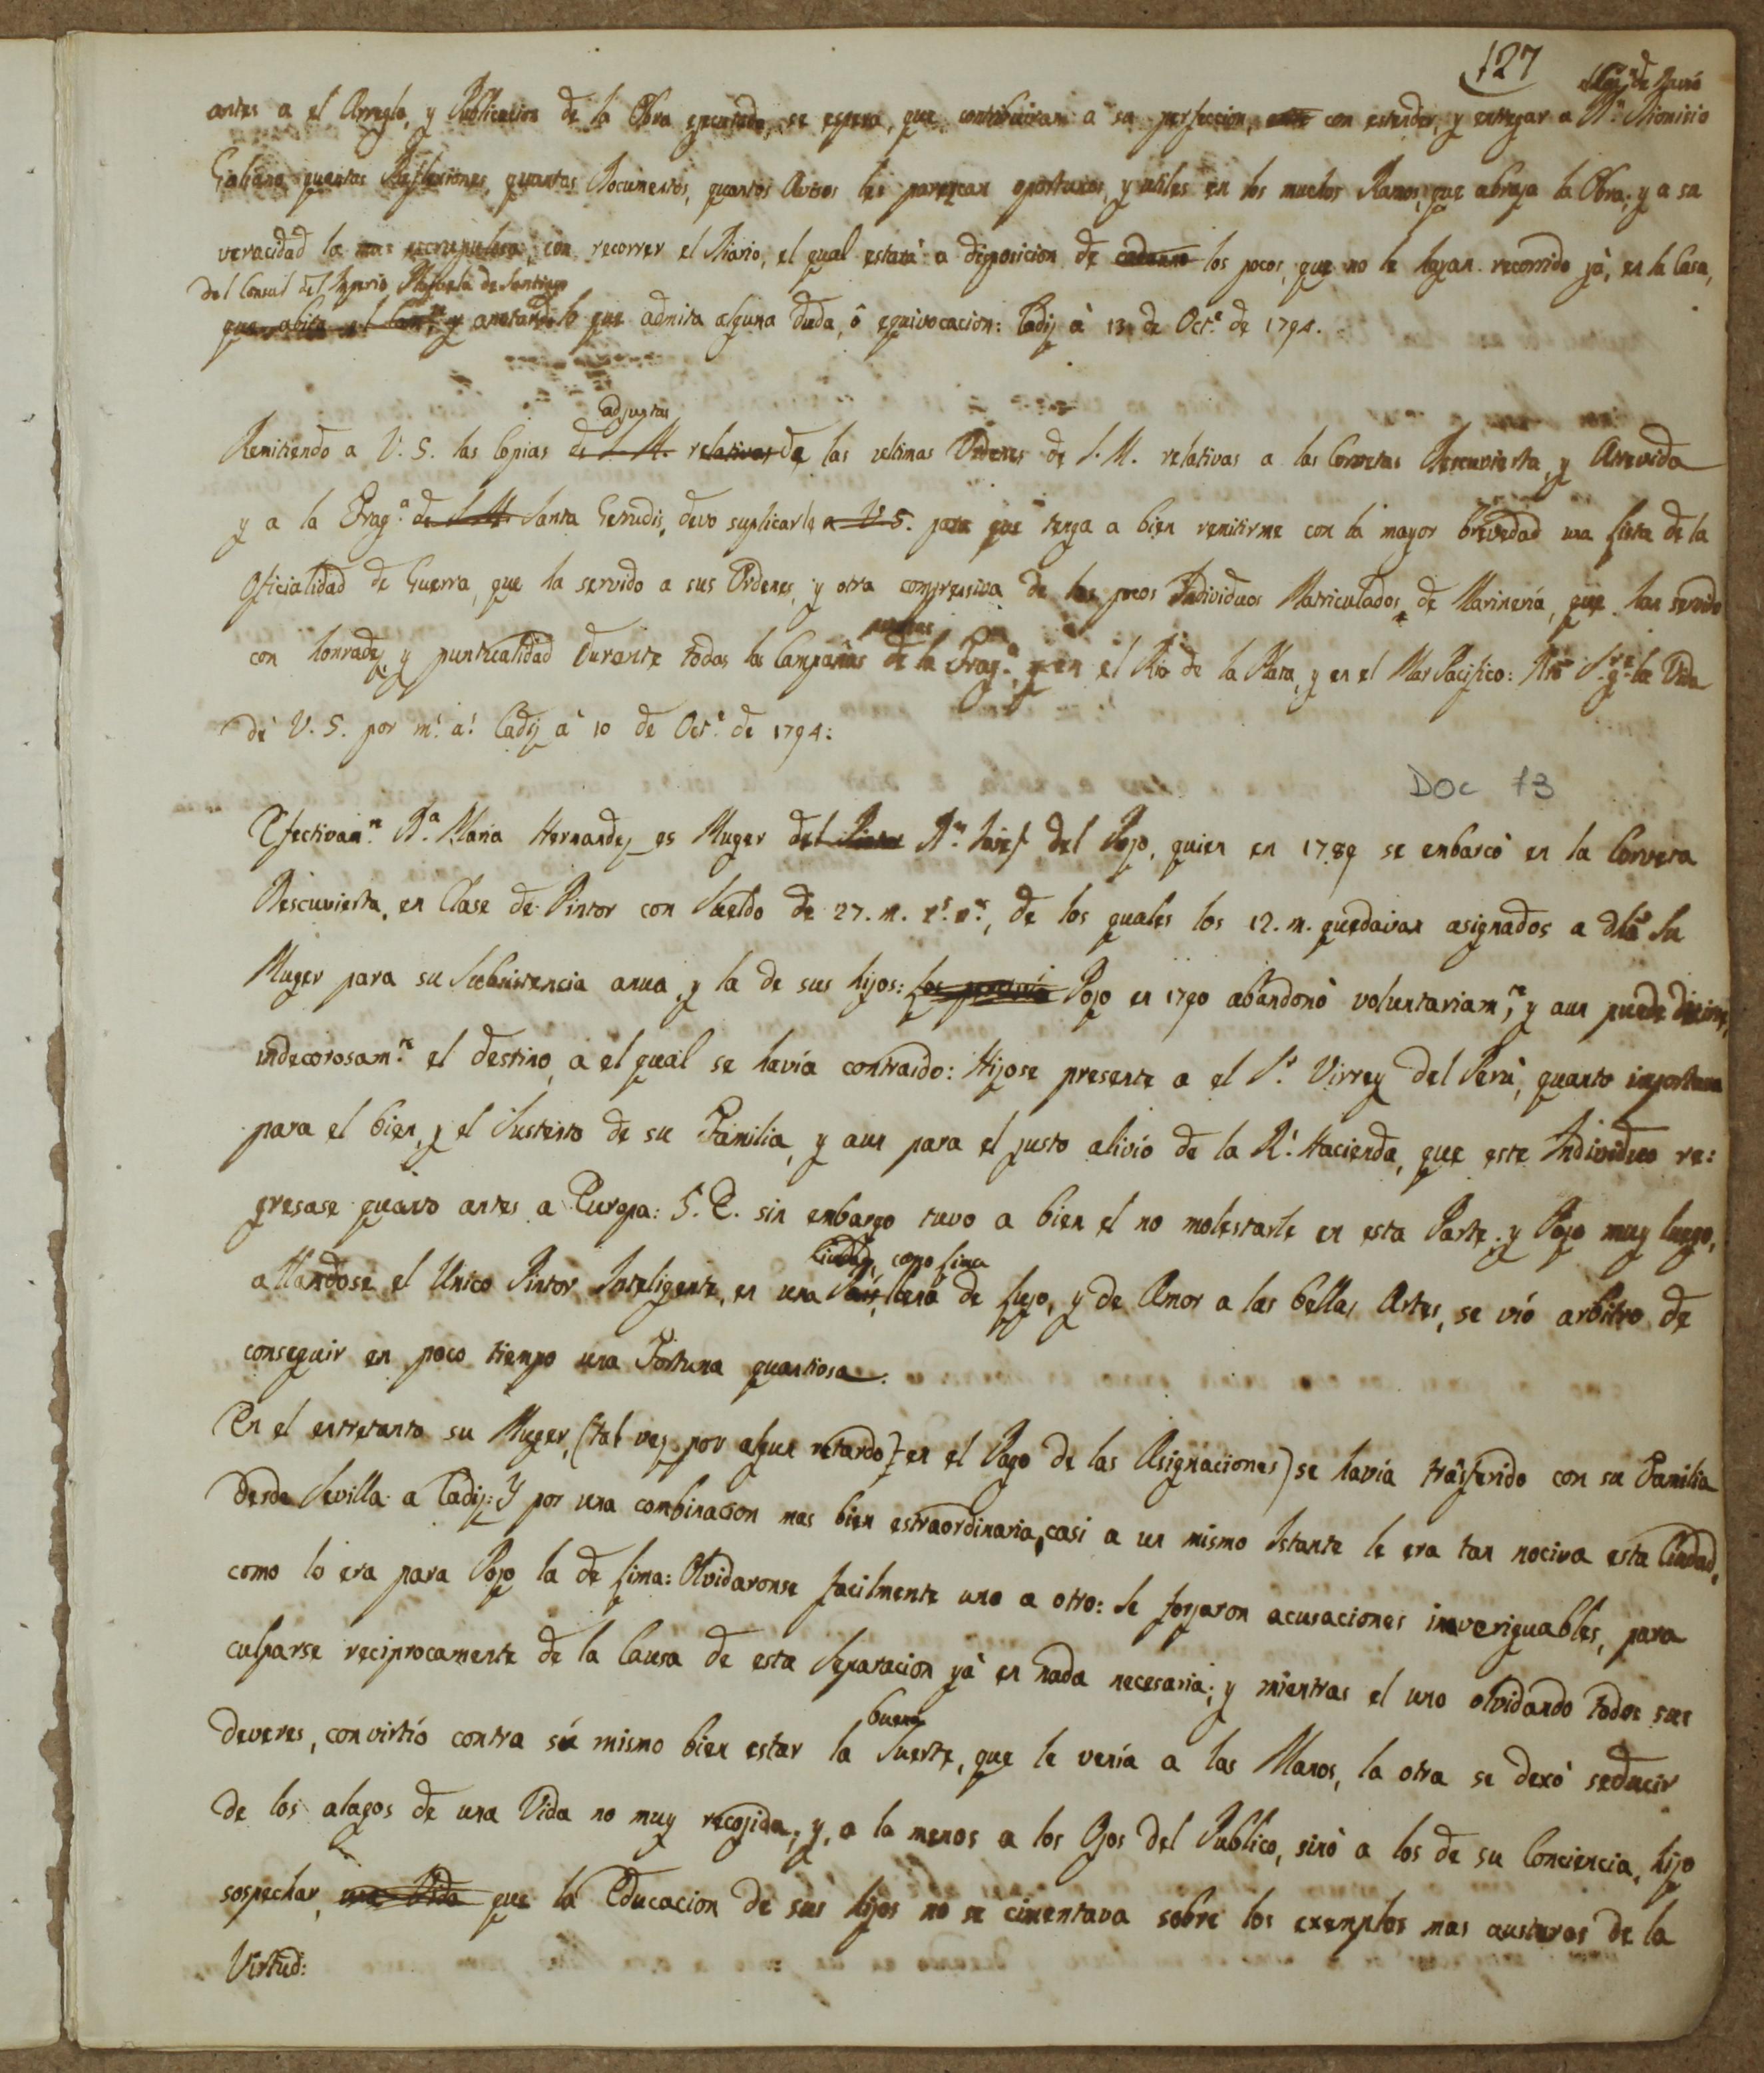 127
el Cap.n de Navio
antes a el Arreglo, y Publicacion de la Obra executada, se espera, que contribuiran a su perfeccion, con estender, y entregar a D.n Dionisio
Galiano quantas Reflexiones, quantos Documentos, quantos Avisos les parezcan oportunos, y utiles en los muchos Ramos, que abraza la Obra; y a su
veracidad la mas escrupulosa; con recorrer el Diario, el qual estarà a disposicion de cadauno los pocos, que no le hayan recorrido jà, en la Casa,
del Consul del Imperio de Santiago
que abita el y anotando lo que admita alguna duda, ô equivocacion: Cadiz à 13 de Oct.e de 1794.
adjuntas
Remitiendo a V. S. las Copias de S. M. relativas de las ultimas Ordenes de S. M. relativas a las Corvetas Descuvierta, y Atrevida
y a la Frag.a de S. M. Santa Gertrudis, devo suplicarle a V. S. para que tenga a bien remitirme con la mayor brevedad una Lista de la
Oficialidad de Guerra, que ha servido a sus Ordenes, y otra compresiva de los pocos Individuos Matriculados de Marinería, que han servido
con honradez y puntualidad durante todas las Campañas de la Frag.a, y en el Rio de la Plata, y en el Mar Pacifico: Nro S.r g.e la Vida
de V. S. por m.s a.s Cadiz à 10 de Oct.e de 1794:
DOC 73
Efectivam.te D.a Maria Hernandez es Muger del Pintor D.n Josef del Pozo, quien en 1789 se embarcò en la Corveta
Descuvierta, en Clase de Pintor con Sueldo de 27.m. r.s v.n, de los quales los 12.m. quedavan asignados a dha Su
Muger para su Subsistencia anua, y la de sus hijos: Los percivía Pozo en 1790 abandonò voluntariam.te, y aun puede decirse,
indecorosam.te el destino, a el qual se havía contraido: Hizose presente a el S.r Virrey del Perù, quanto importava
para el bien, y el Sustento de su Familia, y aun para el justo alivio de la R.l Hacienda, que este Individuo re:
gresase quanto antes a Europa: S. E. sin embargo tuvo a bien el no molestarle en esta Parte. y Pozo muy luego,
Ciudad, como Lima
allandose el Unico Pintor Inteligente, en una Pais, llena de Lujo, y de Amor a las bellas Artes, se viò arbitro de
conseguir en poco tiempo una Fortuna quantiosa.
En el entretanto su Muger, (tal vez por algun retardo en el Pago de las Asignaciones) se havía trasferido con su Familia
desde Sevilla a Cadiz: Y por una combinacion mas bien estraordinaria, casi a un mismo Istante le era tan nociva esta Ciudad,
como lo era para Pozo la de Lima: Olvidaronse facilmente uno a otro: Se forjaron acusaciones inaveriguables, para
culparse reciprocamente de la Causa de esta Separacion yà en nada necesaria; y mientras el uno olvidando todos sus
buena
deveres, convirtió contra sú mismo bien estar la Suerte, que le venía a las Manos, la otra se dexò seducir
de los alagos de una Vida no muy recojida; y, a la menos a los Ojos del Publico, sinò a los de su Conciencia, hizo
sospechar, una Vida que la Educacion de sus hijos no se cimentava sobre los exemplos mas austeros de la
Virtud: